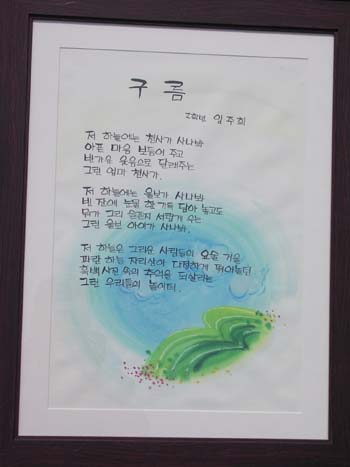 구름
2학년 임주희
저 하늘에는 천사가 사나봐
아픈 마음 보듬어 주고
반가운 웃음으로 달래주는
그런 엄마 천사가.
저 하늘에는 울보가 사나봐
빈 잔에 눈물 한 가득 담아 놓고도
뭐가 그리 슬픈지 서럽게 우는
그런 울보 아이가 사나봐.
저 하늘은 그리운 사람들이 모일 거울
파란 하늘 자리삼아 다정하게 뛰어놀던
흑백사진 속의 추억을 되살리는
그런 우리들의 놀이터.